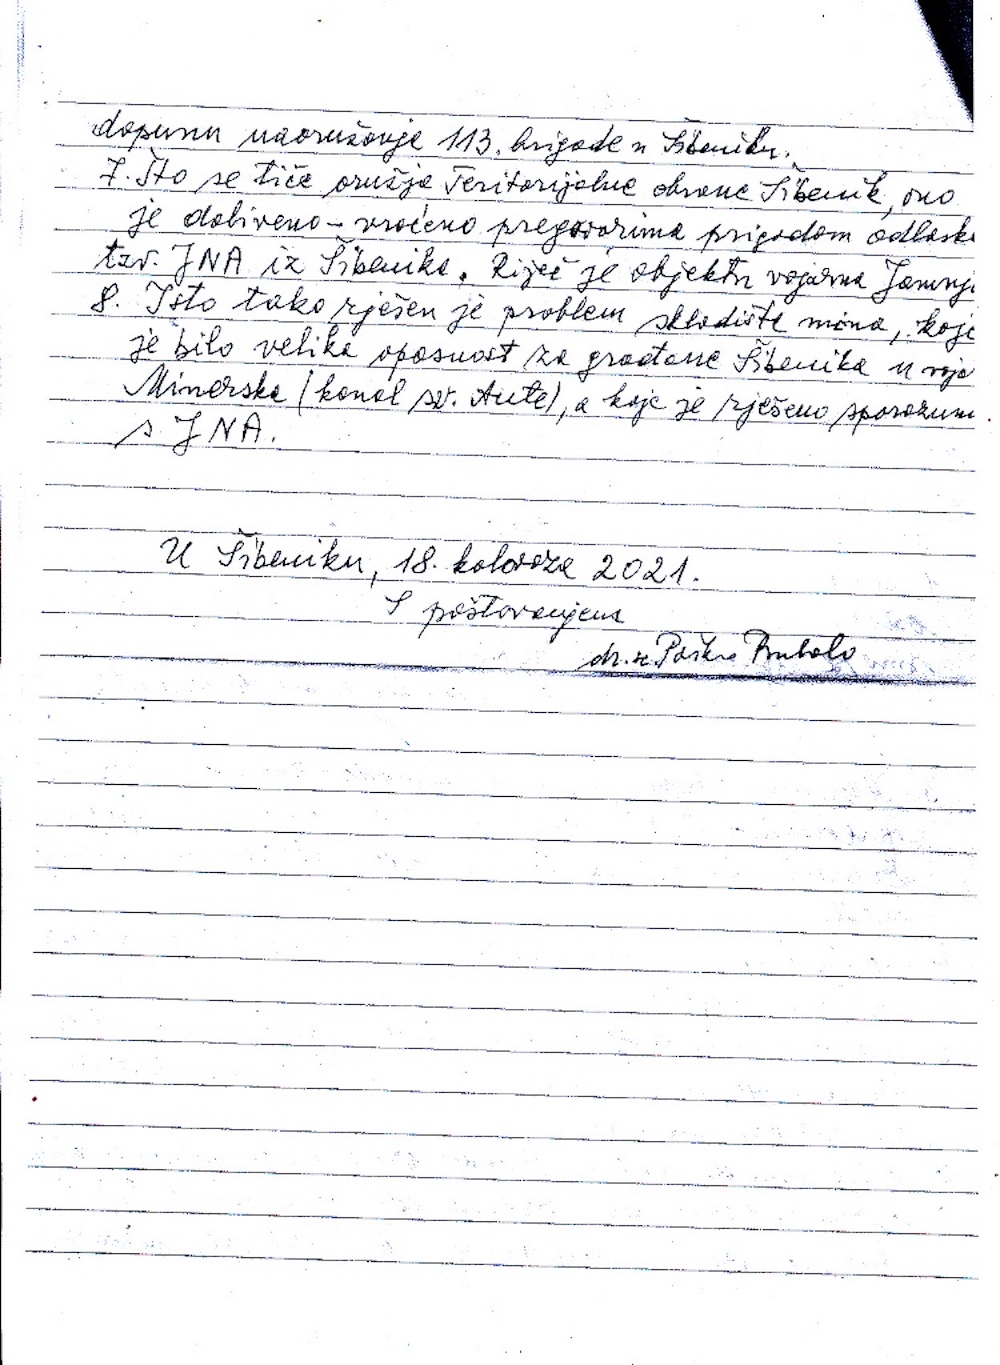 dopunu naoružanja 113. brigade u Šibeniku.
7. Što se tiče oružja Teritorijalne obrane Šibenik, ono
je dobiveno - vraćeno pregovorima prigodom odlaska
tzv. JNA iz Šibenika. Riječ je objektu vojarna Jamnja
8. Isto tako rješen je problem skladište mina, koje
je bilo velika opasnost za građane Šibenika u voja
Minerska (kanal sv. Ante), a koje je rješeno sporazum
s JNA.
U Šibeniku, 18. kolovoza 2021.
S poštovanjem
dr. sc. Paško Bubalo